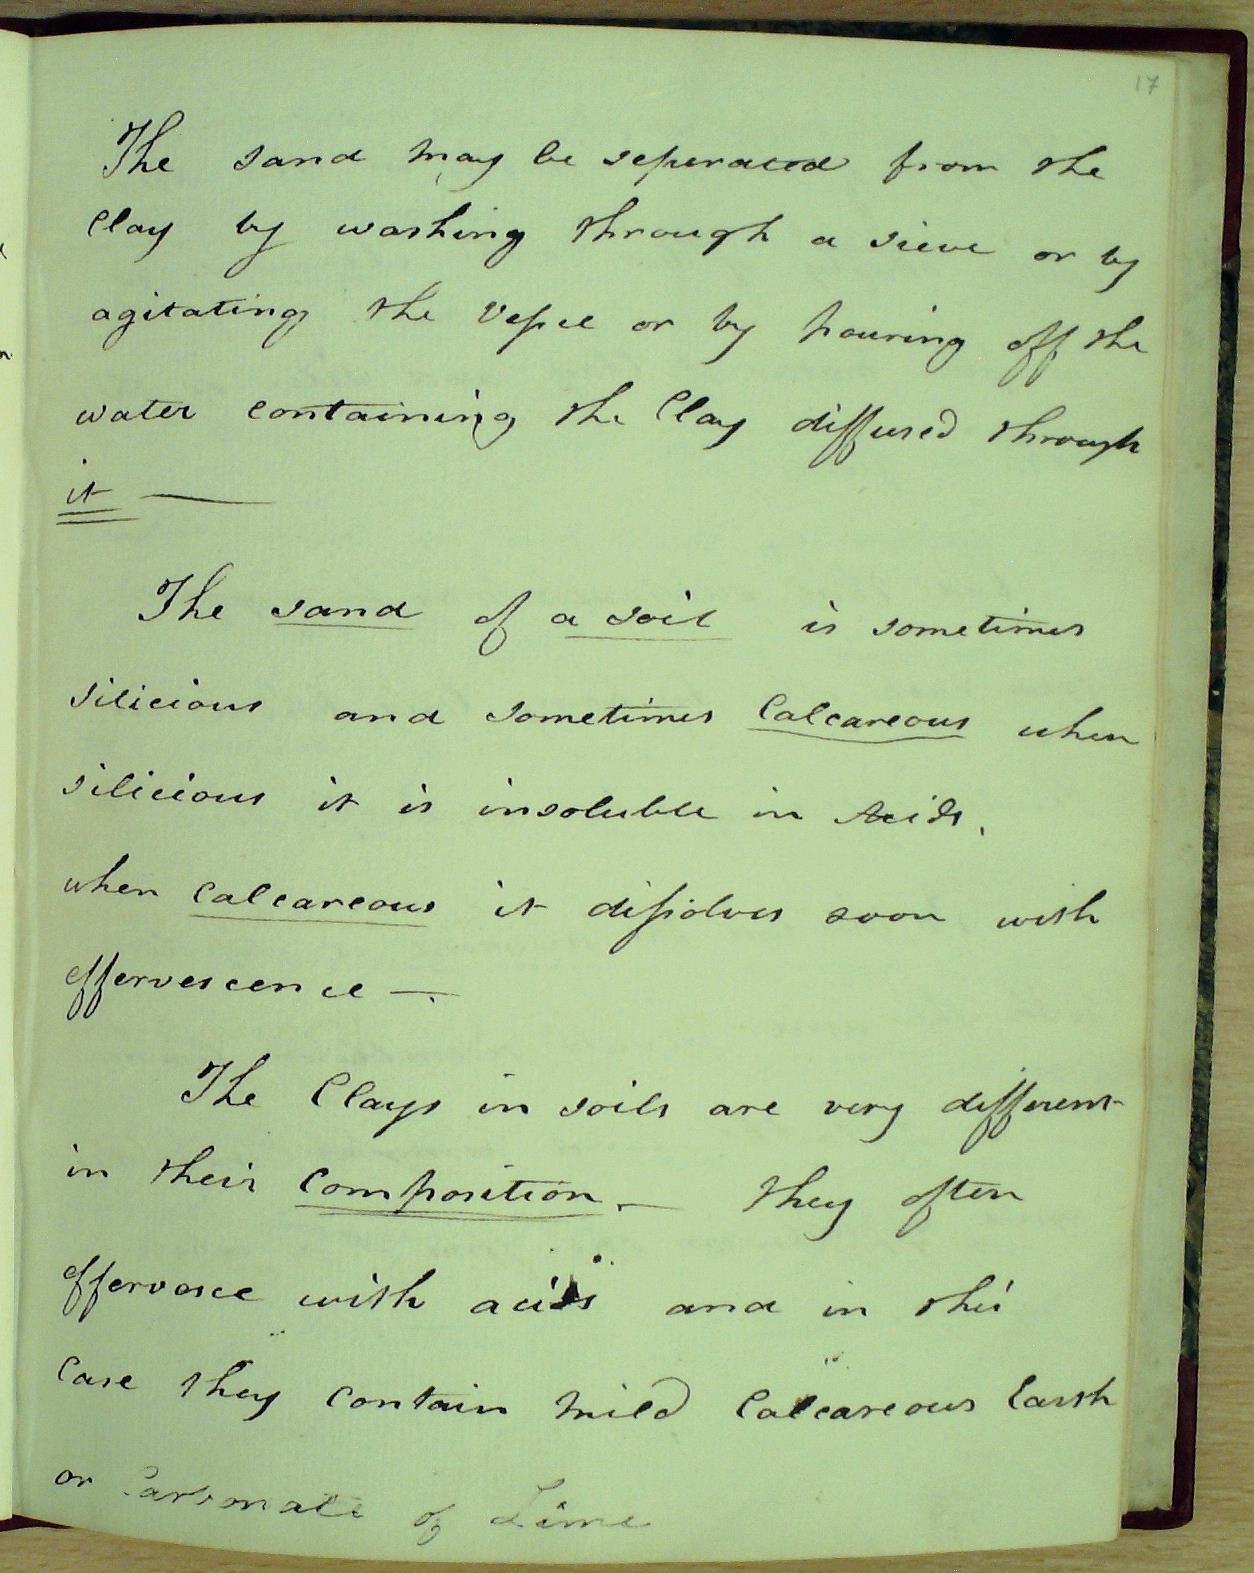 17
The sand may be seperated from the
Clay by washing through a sieve or by
agitating the Veſsel or by pouring off the
water containing the Clay diffused through
it —
The sand of a soil is sometimes
silicious and sometimes Calcareous when
silicious it is insoluble in Acids.
when Calcareous it diſsolves soon with
effervescence —.
The Clays in soils are very different
in their Composition. — They often
effervesce with acids and in this
Case they contain mild Calcareous Earth
or Carbonate of Lime